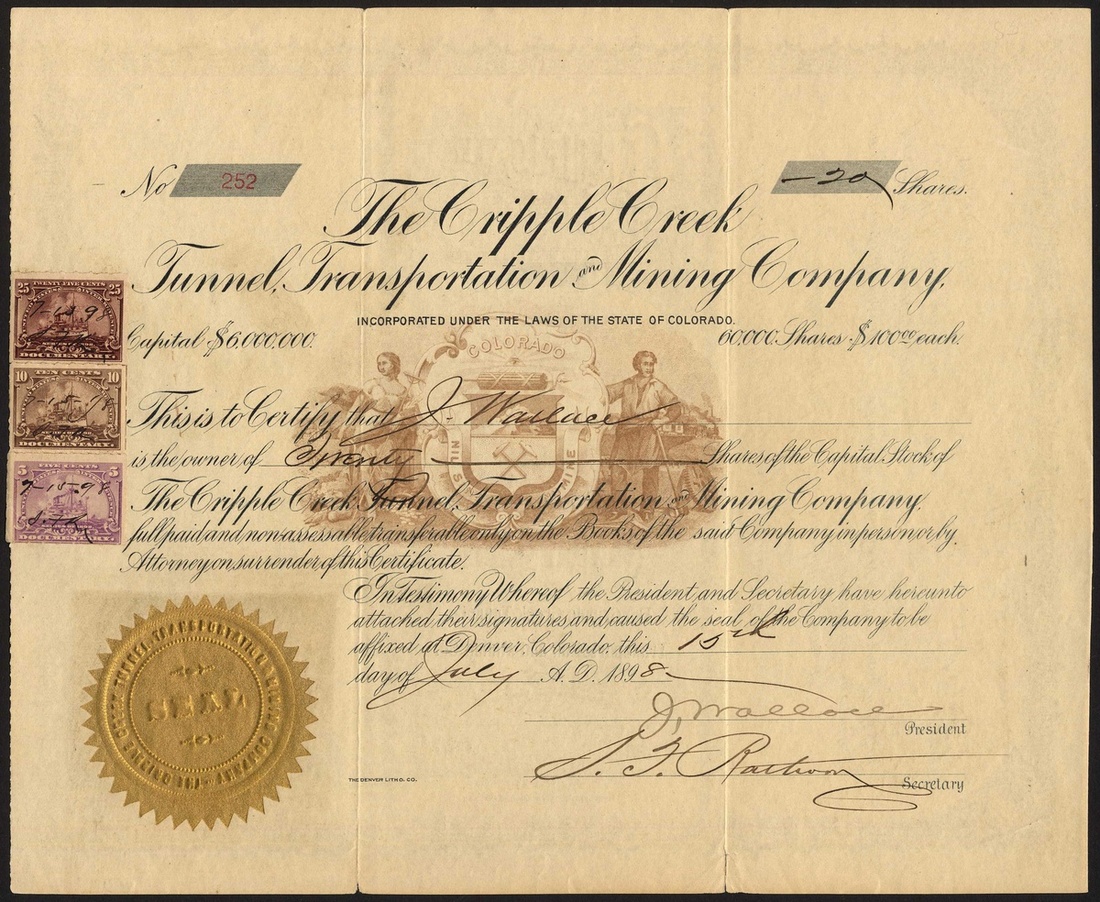 No 252
20 Shares.
The Cripple Creek
Tunnel, Transportation and Mining Company,
INCORPORATED UNDER THE LAWS OF THE STATE OF COLORADO.
Capital $6,000,000.
60,000 Shares $100.00 each.
COLORADO
NIL SINE
This is to Certify that J. Wallace
is the owner of Twenty Shares of the Capital Stock of
The Cripple Creek Tunnel, Transportation and Mining Company,
full paid and non-assessable, transferable only on the Books of the said Company in person or by
Attorney on surrender of this Certificate.
In Testimony Whereof the President and Secretary have hereunto
attached their signatures and caused the seal of the Company to be
affixed at Denver, Colorado, this 15th
day of July A.D. 1898
J. Wallace
President
Secretary
THE DENVER LITHO. CO.
25 TWENTY FIVE CENTS 25
DOCUMENTARY
10 TEN CENTS 10
7-15-98
DOCUMENTARY
5 FIVE CENTS 5
7-15-98
DOCUMENTARY
THE CRIPPLE CREEK TUNNEL TRANSPORTATION & MINING COMPANY
SEAL